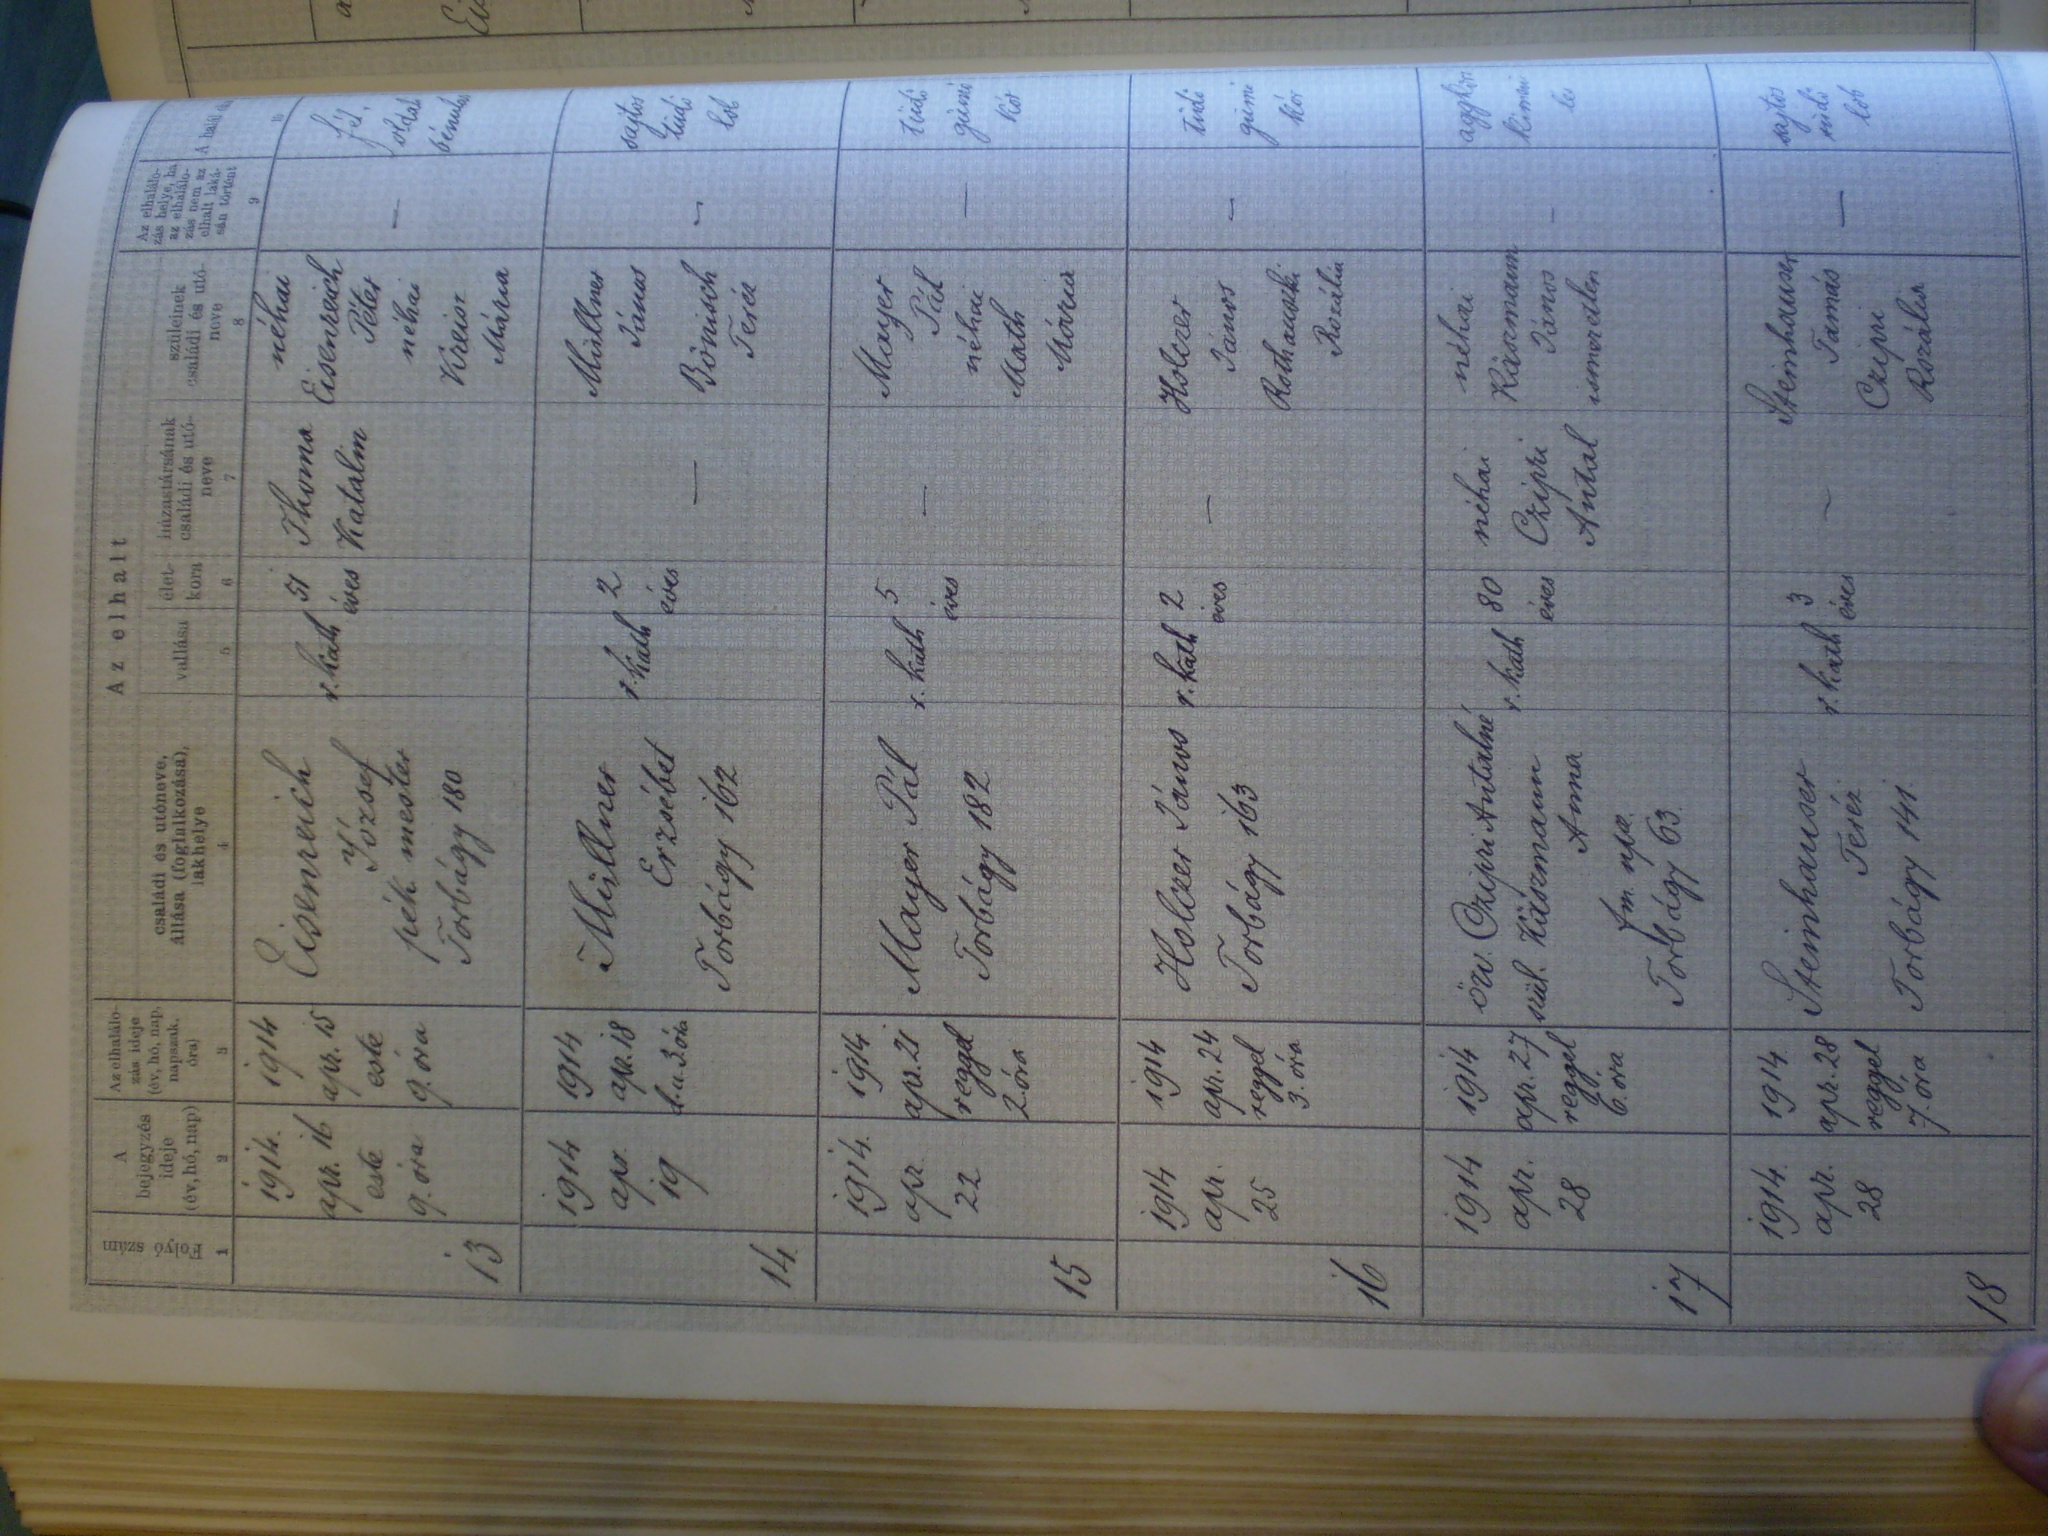 Az elhalt
Folyó szám
A bejegyzés ideje (év, hó, nap)
Az elhalálo-
zás ideje
(év, hó, nap,
napszak,
óra)
családi és utóneve,
állása (foglalkozása),
lakhelye
vallása
élet-
kora
házastársának
családi és utó-
neve
szüleinek
családi és utó-
neve
Az elhalálo-
zás helye, ha
az elhalálo-
zás nem az
elhalt laká-
sán történt
A halál
1 2 3 4 5 6 7 8 9 10
13
1914.
apr. 16
este
9. óra
1914
apr. 15
este
9. óra
Eisenreich
József
pék mester
Torbágy 180
r. kath
51
éves
Thoma
Katalin
néhai
Eisenreich
Péter
néhai
Kreisz
Mária
—
fél
oldal
14.
1914
apr.
19
1914
apr. 18
d.u. 3 óra
Müllner
Erzsébet
Torbágy 162
r. kath
2
éves
—
Müllner
János
Bönisch
Teréz
—
sajtos
tüdő
lob
15
1914.
apr.
22
1914.
apr. 21
reggel
2. óra
Mayer Pál
Torbágy 182
r. kath
5
éves
—
Mayer
Pál
néhai
Math
Mária
—
tüdő
gümő
kór
16
1914
apr.
25
1914
apr. 24
reggel
3. óra
Holczer János
Torbágy 163
r. kath
2
éves
—
Holczer
János
Rozália
—
tüdő
gümő
kór
17
1914
apr.
28
1914
apr. 27
reggel
6. óra
özv. Czipri Antalné
szül. Käszmann
Anna
Torbágy 63.
r. kath
80
éves
néhai
Czipri
Antal
néhai
Käszmann
János
ismeretlen
—
18
1914.
apr.
28
1914
apr. 28
reggel
7. óra
Steinhauser
Teréz
Torbágy 141.
r. kath
3
éves
—
Steinhauser
Tamás
Czipri
Rozália
—
sajtos
tüdő
lob